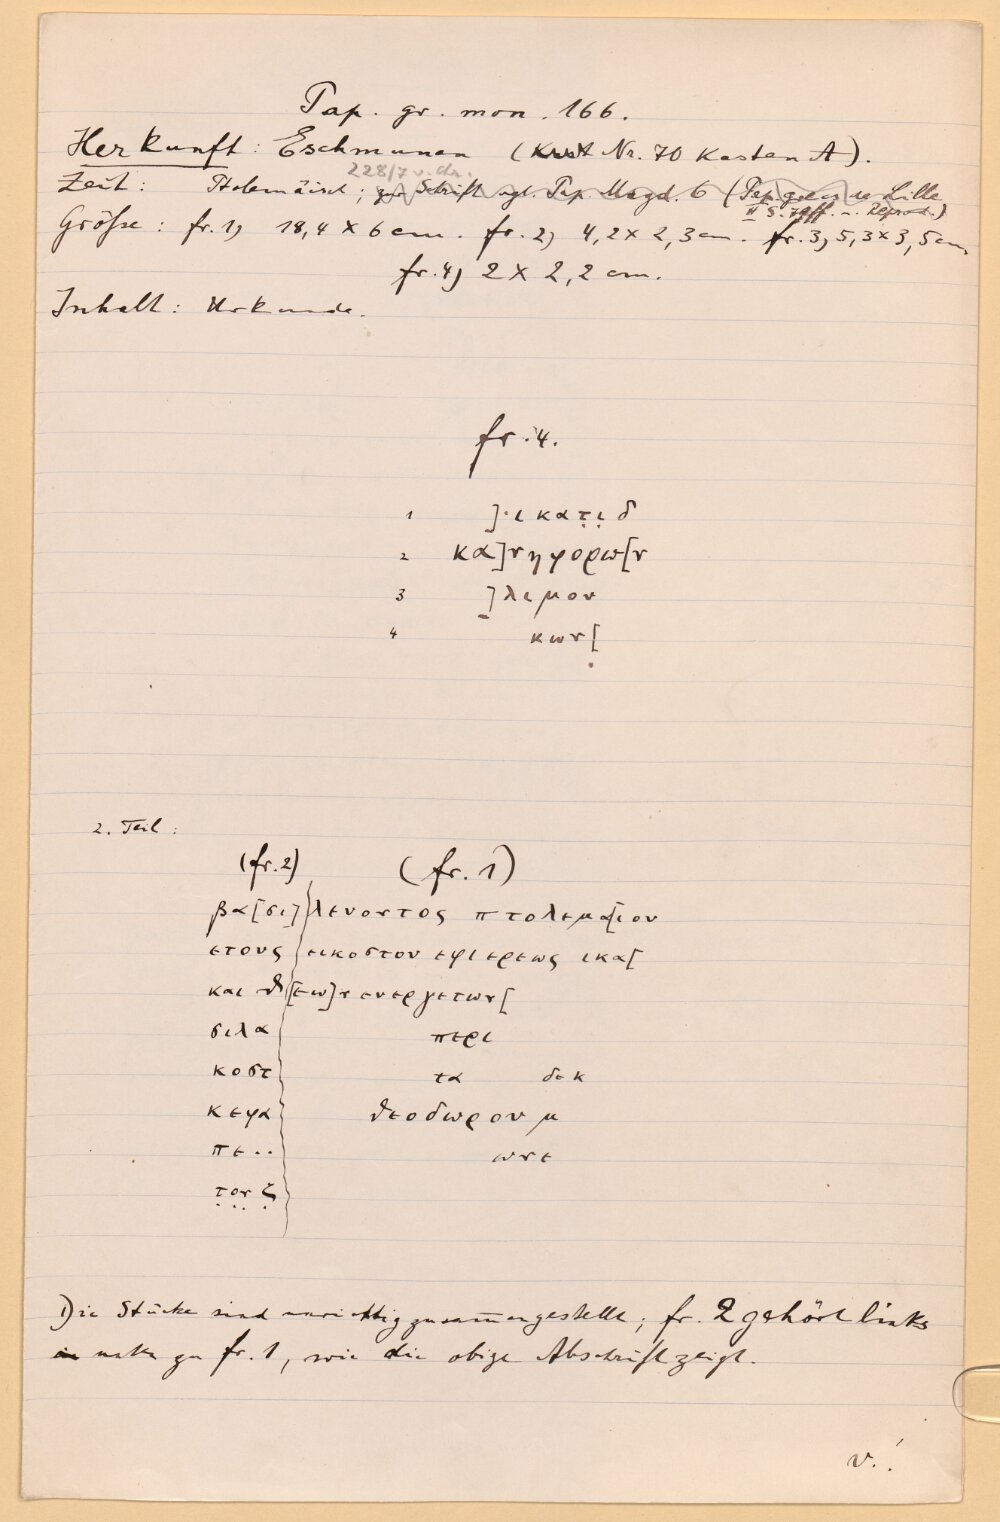 Pap. gr. mon. 166.
Herkunft: Eschmunen (Kist Nr. 70 Kasten A).
228/7 v. Chr.
Zeit: Ptolemäisch; zur Schrift vgl. Pap. Magd. 6 (Pap. grecs de Lille
II S. 74ff. u. Reprod.)
Größe: fr. 1) 18,4 × 6 cm. fr. 2) 4,2 × 2,3 cm. fr. 3) 5,3 × 3,5 cm,
fr. 4) 2 × 2,2 cm.
Inhalt: Urkunde.
fr. 4.
1 ]·ι κατ̣ι̣ δ
2 κα]νηφορω[ν
3 ]λιμου
4 κων[
2. Teil:
(fr. 2) (fr. 1)
βα[σι]λευοντος πτολεμα[ιου
ετους εικοστου εφιερεως ικα[
και θ[εω]ν ευεργετων[
σιλα περι
κοστ τα δεκ
κεφα θεοδωρου μ
πε·· ωνε
τ̣ο̣υ̣ ζ̣
Die Stücke sind unrichtig zusammengestellt; fr. 2 gehört links
unten zu fr. 1, wie die obige Abschrift zeigt.
v.!